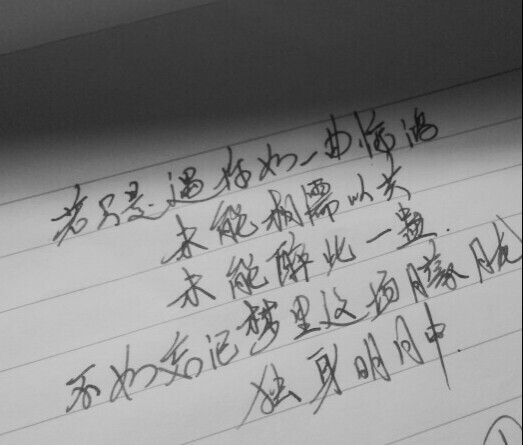 若只是遇你如一曲惊鸿
未能相濡以共
未能醉此一盏.
不如忘记梦里这场朦胧
独身明月中.